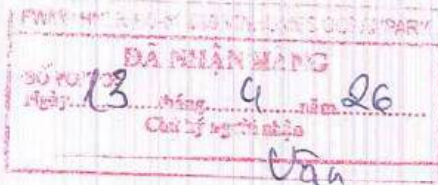 ĐÃ NHẬN HÀNG
SỐ
Ngày 13 tháng 4 năm 26
Chữ ký người nhận
Vân